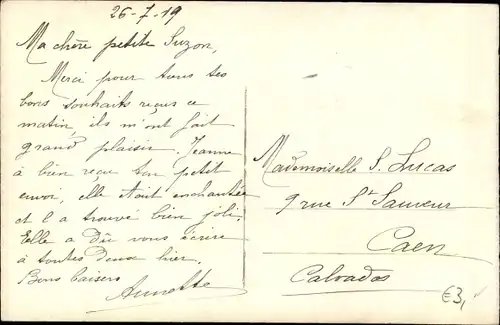 26-7-19
Ma chère petite Suzon,
Merci pour tous tes
bons souhaits reçus ce
matin, ils m'ont fait
grand plaisir. Jeanne
à bien reçu ton petit
envoi, elle était enchantée
et l'a trouvé bien joli.
Elle a dû vous écrire
à toutes deux hier.
Bons baisers
Annette
Mademoiselle S. Lucas
9 rue St Sauveur
Caen
Calvados
€3,